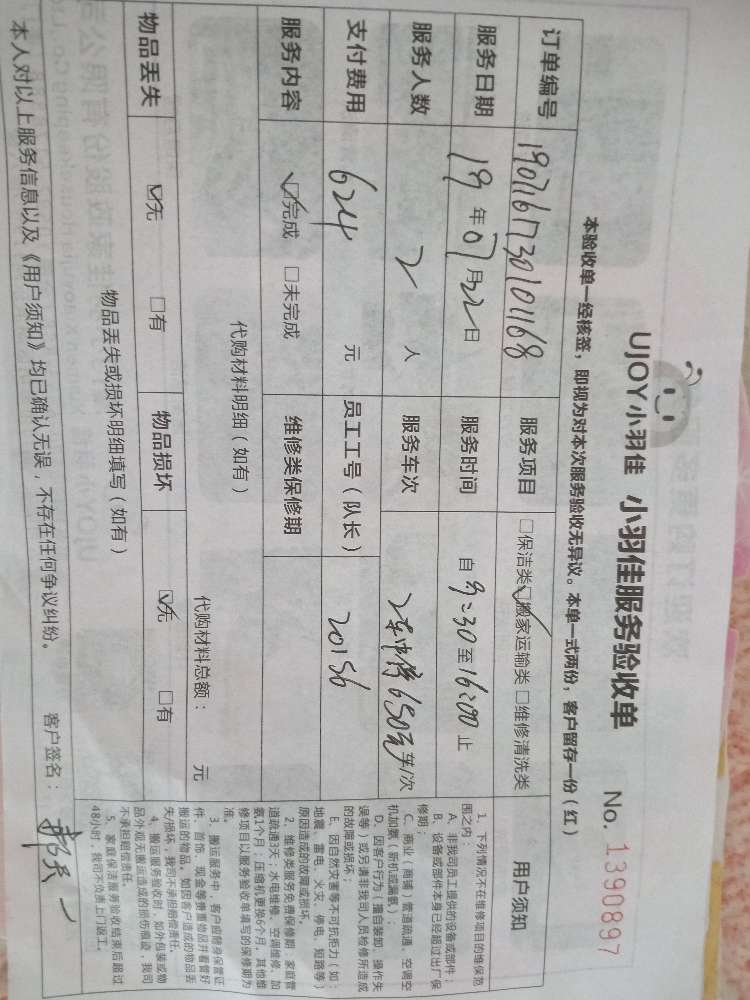 UJOY小羽佳 小羽佳服务验收单 No. 1390897
本验收单一经核签，即视为对本次服务验收无异议。本单一式两份，客户留存一份（红）
订单编号 1907161730101168 服务项目 □保洁类☑搬家运输类 □维修清洗类
服务日期 19年07月22日 服务时间 自9:30至16:00止
服务人数 2人 服务车次 650元 车/次
支付费用 624元 员工工号（队长） 20156
服务内容 ☑完成 □未完成 维修类保修期
代购材料明细（如有）
代购材料总额： 元
物品丢失 ☑无 □有 物品损坏 ☑无 □有
物品丢失或损坏明细填写（如有）
用户须知
1、下列情况不在维修项目的维保范
围之内：
A、非我司员工提供的设备或部件；
B、设备或部件本身已经超过出厂保
修期；
C、商业（商铺）管道疏通、空调空
机加氨（新机或漏氨）；
D、因客户行为（擅自装卸、操作失
误等）或另请非我司人员检修所造成
的故障或损坏；
E、因自然灾害等不可抗拒力（如：
地震、雷电、火灾、停电、短路等）
原因造成的故障或损坏。
2、维修类服务免费保修期：家庭管
道疏通3天；水电维修、空调维修、加
氨1个月；压缩机更换6个月，其他维
修项目以服务验收单填写的保修期为
准。
3、搬运服务中，客户应随身保管证
件、首饰、现金等贵重物品并看管好
搬运的物品。如因客户造成的物品丢
失/损坏，我司不承担赔偿责任。
4、搬运服务验收时，如外包装或物
品外观无搬运造成的损伤痕迹，我司
不承担赔偿责任。
5、家庭保洁服务验收结束后超过
48小时，我司不负责上门返工。
本人对以上服务信息以及《用户须知》均已确认无误，不存在任何争议纠纷。 客户签名：